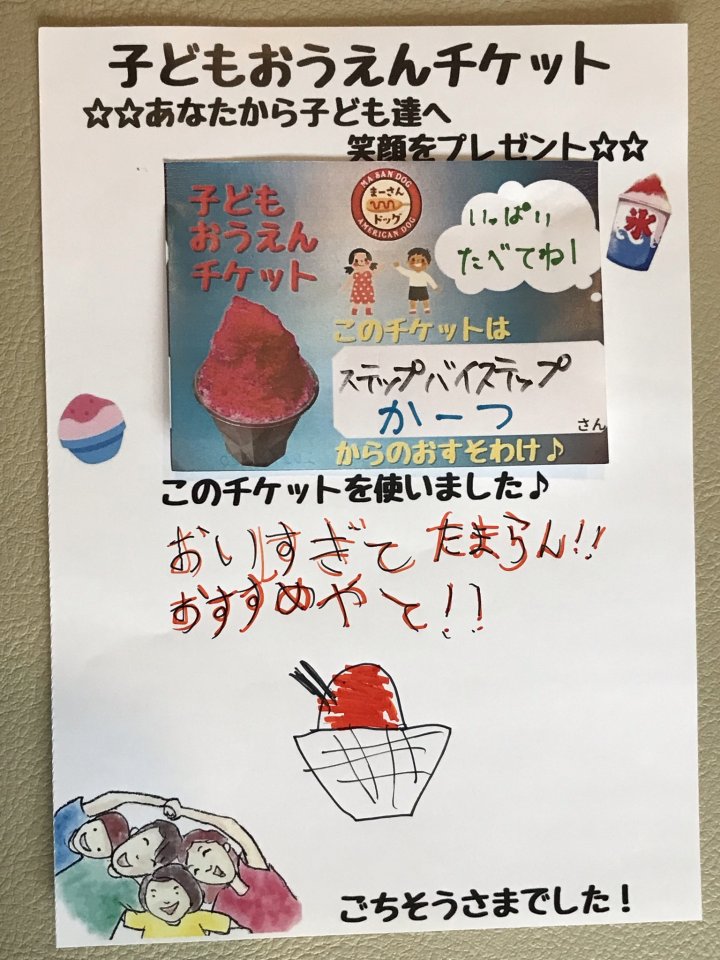 子どもおうえんチケット
☆☆あなたから子ども達へ
笑顔をプレゼント☆☆
子ども
おうえん
チケット
MA SAN DOG
まーさん
ドッグ
AMERICAN DOG
いっぱい
たべてね!
氷
このチケットは
ステップバイステップ
かーつ
さん
からのおすそわけ♪
このチケットを使いました♪
おいしすぎて たまらん!!
おすすめやで!!
ごちそうさまでした!